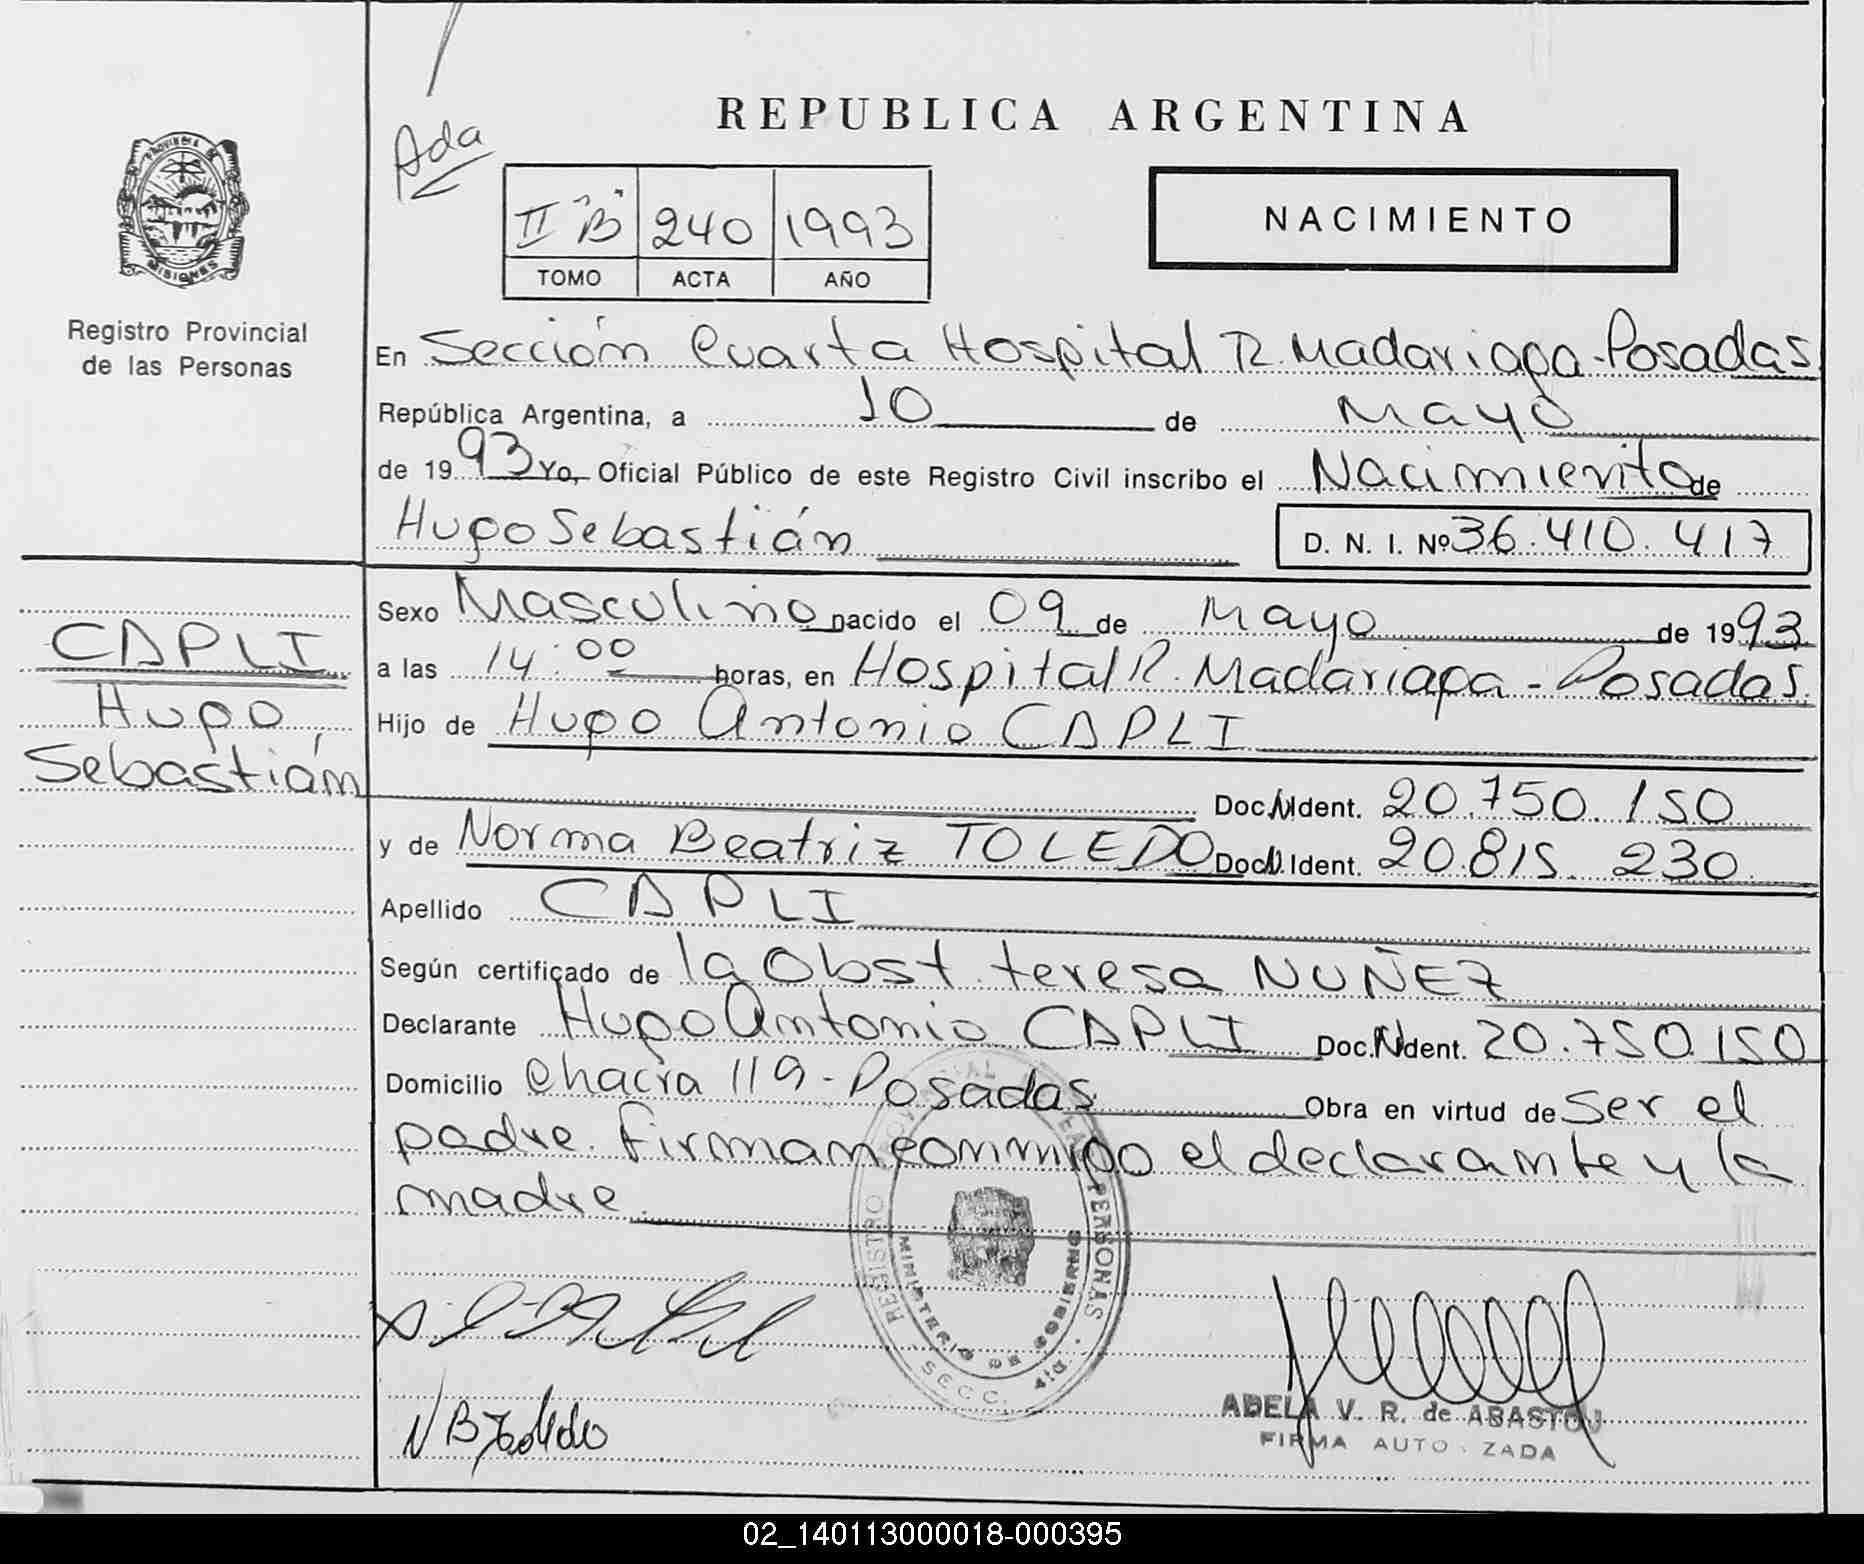 REPUBLICA ARGENTINA
Ada
II "B" 240 1993
TOMO ACTA AÑO
NACIMIENTO
PROVINCIA DE
MISIONES
Registro Provincial
de las Personas
En Sección Cuarta Hospital R. Madariaga-Posadas
República Argentina, a 10 de Mayo
de 1993 Yo, Oficial Público de este Registro Civil inscribo el Nacimiento de
Hugo Sebastián D. N. I. Nº 36.410.417
Sexo Masculino nacido el 09 de Mayo de 1993
a las 14:00 horas, en Hospital R. Madariaga - Posadas.
Hijo de Hugo Antonio CAPLI
Doc.N.Ident. 20.750.150
y de Norma Beatriz TOLEDO Doc.N.Ident. 20.815.230
Apellido CAPLI
Según certificado de la Obst. teresa NUÑEZ
Declarante Hugo Antonio CAPLI Doc.N.Ident. 20.750.150
Domicilio Chacra 119 - Posadas Obra en virtud de Ser el
padre. Firman conmigo el declarante y la
madre.
CAPLI
Hugo
Sebastián
REGISTRO PERSONAS
MINISTERIO DE GOBIERNO
SECC. 4ta
N B Toledo
ADELA V. R. de ABASTO
FIRMA AUTORIZADA
02_140113000018-000395